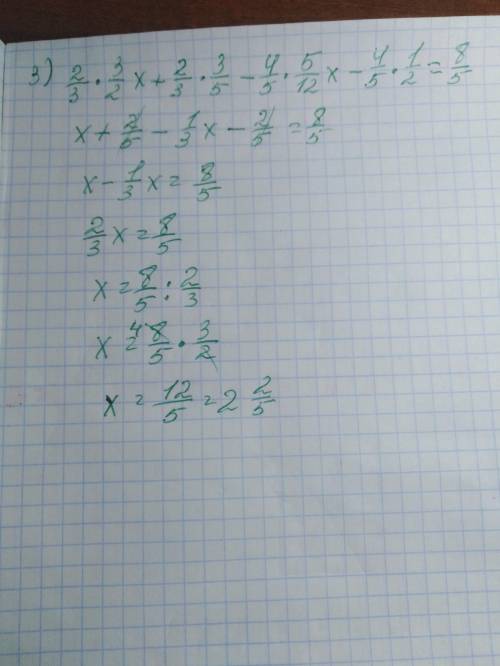 3) 2/3 · 3/2 x + 2/3 · 3/5 - 4/5 · 5/12 x - 4/5 · 1/2 = 8/5
x + 2/5 - 1/3 x - 2/5 = 8/5
x - 1/3 x = 8/5
2/3 x = 8/5
x = 8/5 : 2/3
x = 4 8/5 · 3/2
x = 12/5 = 2 2/5